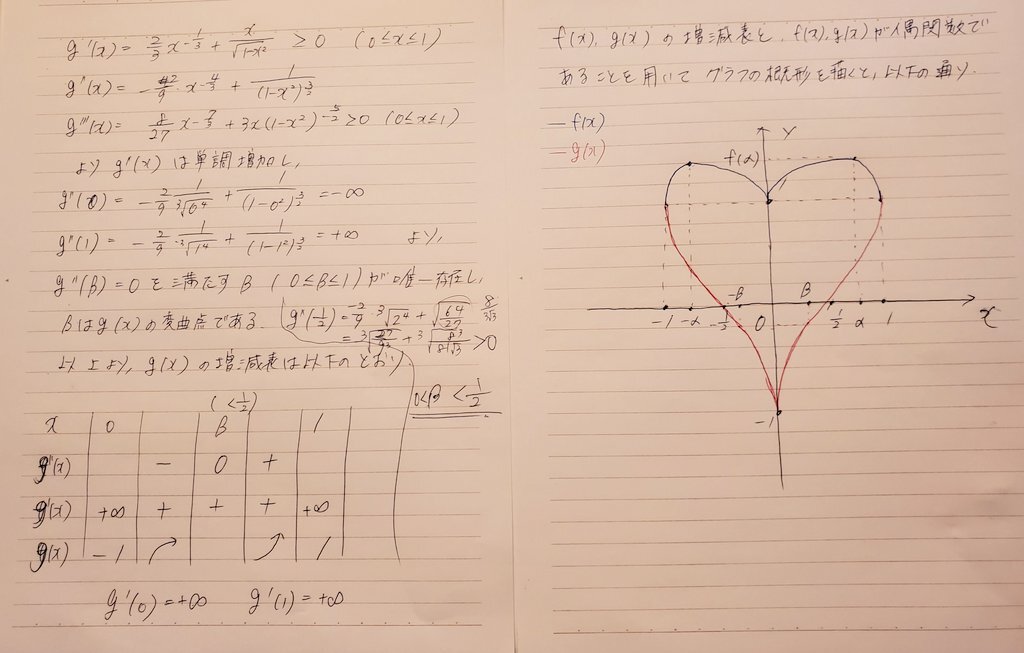 g'(x) = 2/3 x^{-1/3} + x/√(1-x²) ≥ 0 (0≤x≤1)
g''(x) = -2/9 · x^{-4/3} + 1/(1-x²)^{3/2}
g'''(x) = 8/27 x^{-7/3} + 3x(1-x²)^{-5/2} ≥ 0 (0≤x≤1)
より g''(x) は単調増加し,
g''(0) = -2/9 1/³√0⁴ + 1/(1-0²)^{3/2} = -∞
g''(1) = -2/9 · 1/³√1⁴ + 1/(1-1²)^{3/2} = +∞ より,
g''(β) = 0 を満たす β (0≤β≤1) が唯一存在し,
βは g(x) の変曲点である.
g''(1/2) = -2/9 · ³√2⁴ + √(64/27) 8/3√3
> 0
以上より, g(x) の増減表は以下のとおり.
0<β<1/2
(<1/2)
x 0 β 1
g''(x) - 0 +
g'(x) +∞ + + + +∞
g(x) -1 1
g'(0) = +∞ g'(1) = +∞
f(x), g(x) の増減表と, f(x), g(x) が偶関数で
あることを用いて グラフの概形を描くと, 以下の通り.
- f(x)
- g(x)
y
f(α)
-1 -α -1/2 -β 0 β 1/2 α 1 x
-1